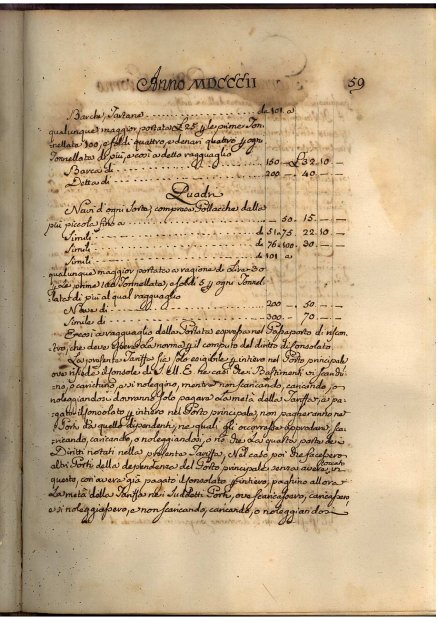 Anno MDCCCII 59
Barche, Tartane de 101 a
qualunque maggior portata £ 25 per le prime Ton
nellate 100, e soldi quattro, e denari quatro per ogni
Tonnellata di più, e così a detto ragguaglio
Barca di 150 — £ 32. 10 —
Detta di 200 — 40 —
Quadri
Navi d'ogni sorta, comprese Pollacche dalla
più piccola fino a 50. 15 — —
Simili de 51 a 75. 22. 10 —
Simili de 76 a 100. 30 — —
Simili de 101 a
qualunque maggior portata a ragione di Lire 30
per le prime 100 Tonnellate, e soldi 5 per ogni Tonnel
lata di più al qual ragguaglio
Nave di 200 — 50 —
Simile di 300 — 70 —
E così a ragguaglio della Portata espressa nel Passaporto di
che deve essere la norma per il computo del diritto di Consolato
La presente Tariffa sia solo esigibile per intiero nel Porto principale
ove risiede il Console di S. M. ne casi che i Bastimenti vi scari
no, o carichino, o si noleggino, mentre non scaricando, caricando, o
noleggiandosi dovranno solo pagare la metà della Tariffa, e pa
gato il Consolato per intiero nel Porto principale, non pagheranno ne
Porti da quello dipendenti, ne quali gli occorresse approdare, sca
ricando, caricando, o noleggiandosi, o nò che la quarta parte dei
Diritti notati nella presente Tariffa. Nel caso poi che facessero
altri Porti della dependenza del Porto principale senza aver toccato
questo, con aver già pagato il Consolato per intiero, paghino allora
La metà della Tariffa nei suddetti Porti, ove scaricassero, caricassero,
e si noleggiassero, e non scaricando, caricando, o noleggiandosi